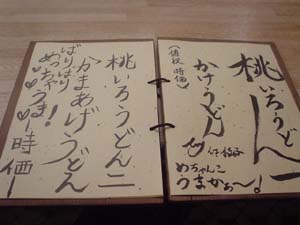 桃いろうどん一
(値段 時価)
かけうどん
めちゃんこ
うまかぁ〜!
桃いろうどん二
かまあげうどん
ばりばり
めっちゃうま!
♡♡♡時価